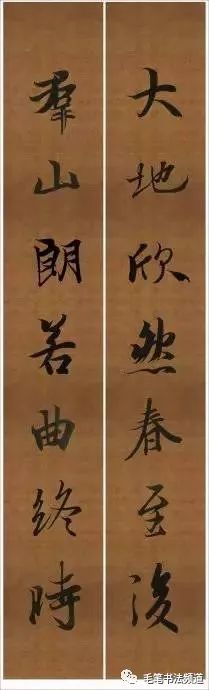 大地欣然春至後
羣山朗若曲終時
毛笔书法频道